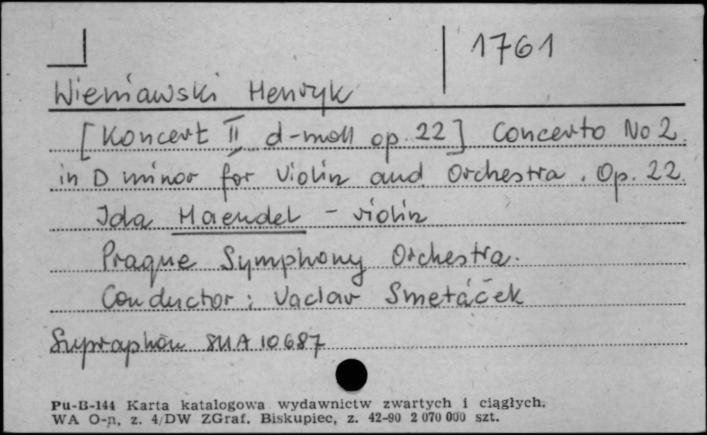 1761
Wieniawski Henryk
[Koncert II d-moll op. 22] Concerto No 2
in D minor for Violin and Orchestra. Op. 22.
Ida Haendel - violin
Prague Symphony Orchestra.
Conductor: Vaclav Smetáček
Supraphon SUA 10687
Pu-B-144 Karta katalogowa wydawnictw zwartych i ciągłych.
WA O-n, z. 4/DW ZGraf. Biskupiec, z. 42-90 2 070 000 szt.